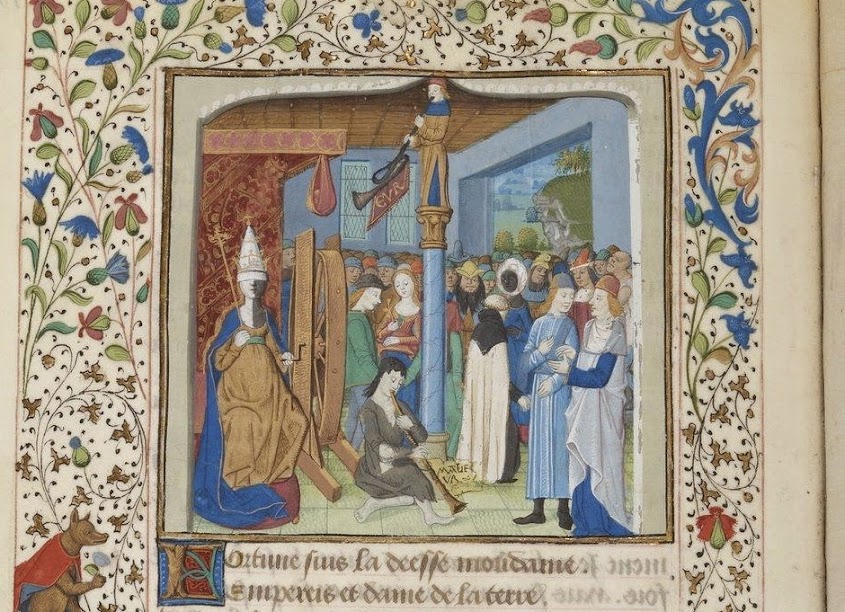 EVR
MALE
VR
Fortune suis la deesse mondaine.
Empereis et dame de la terre.